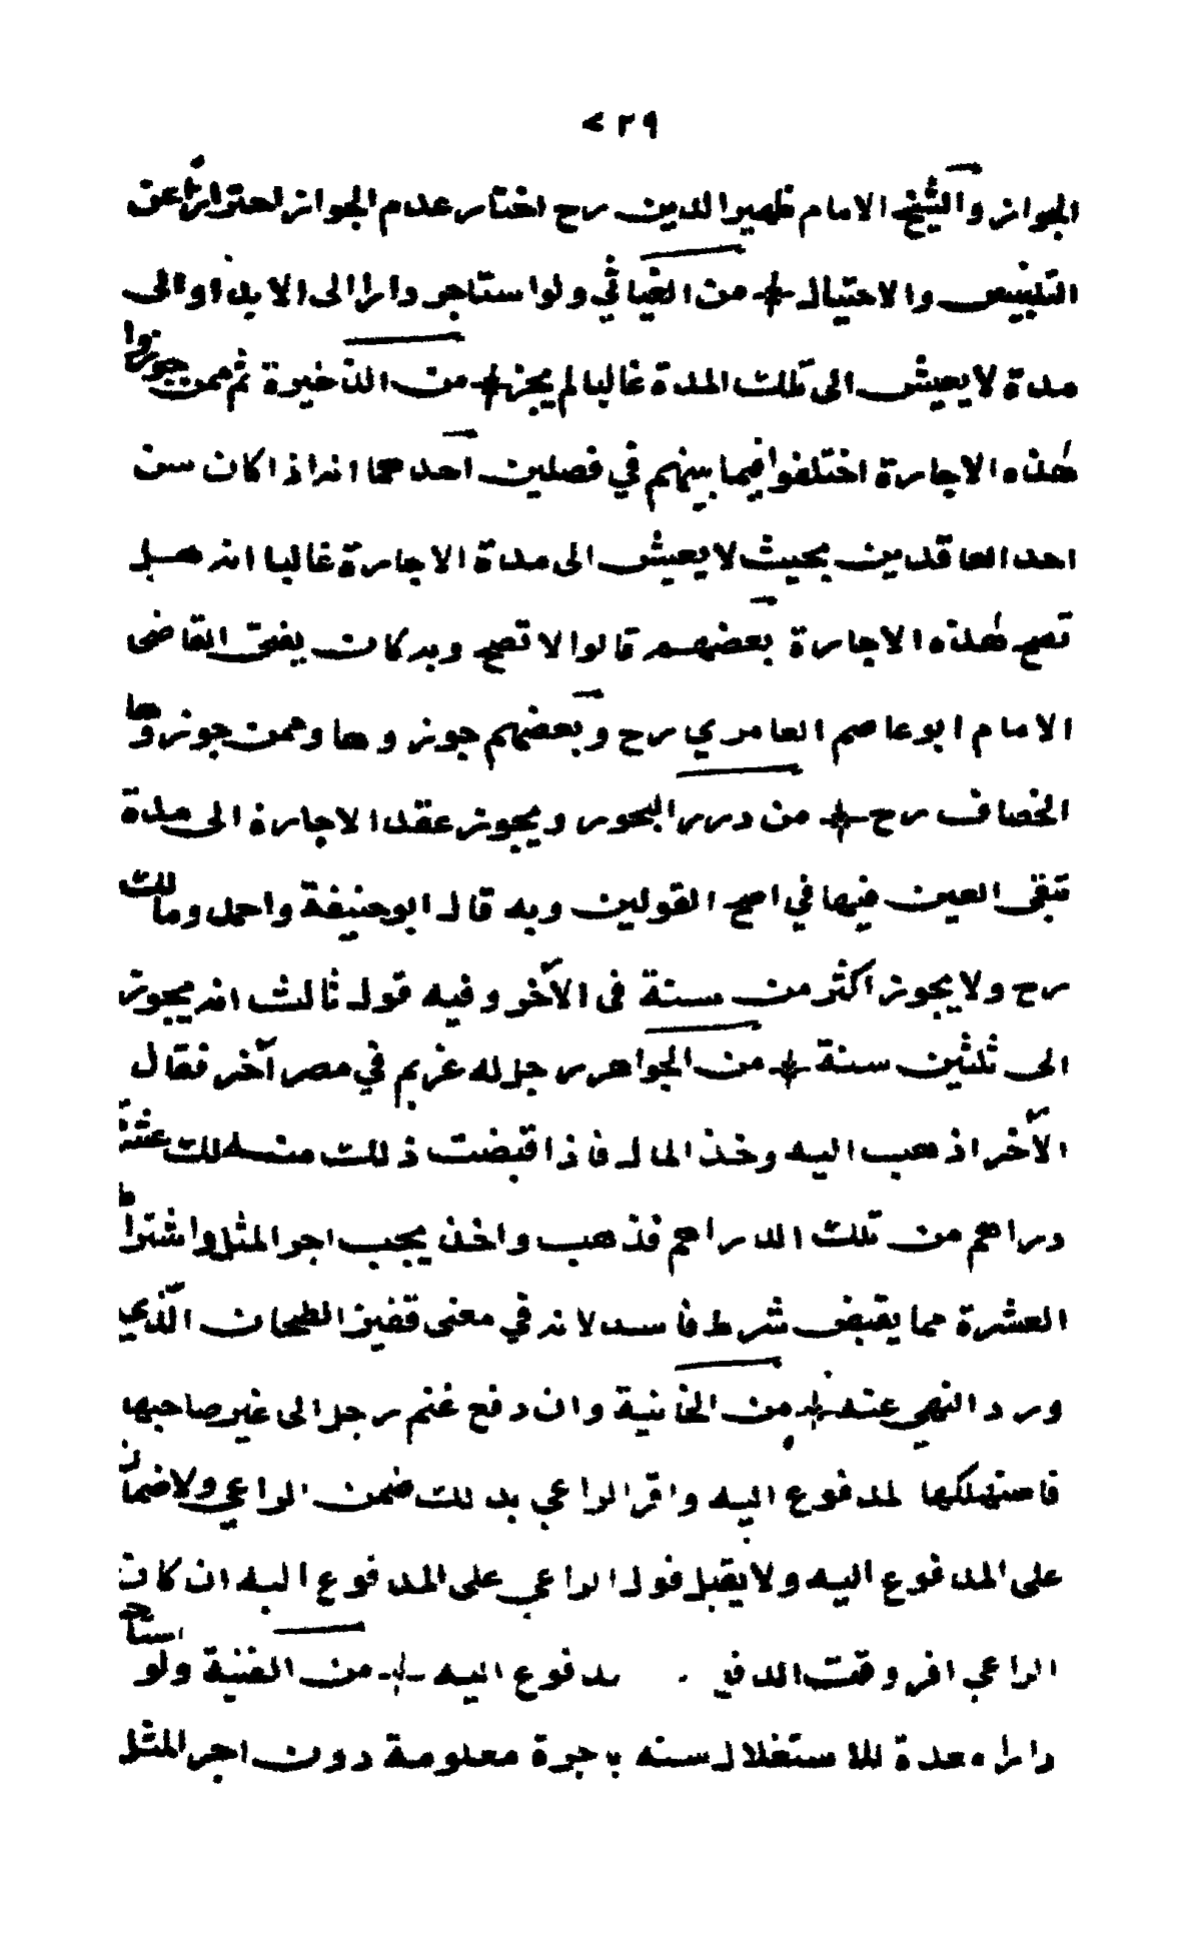 ٧٢٩
الجواز والشيخ الامام ظهير الدين رح اختار عدم الجواز احترازا عن
التلبيس والاحتيال من الغياثي ولو استاجر دارا الى الابد او الى
مدة لا يعيش الى تلك المدة غالبا لم يجز من الذخيرة ثم ممن جوزوا
هذه الاجارة اختلفوا فيما بينهم في فصلين احدهما انه اذا كان سن
احد العاقدين بحيث لا يعيش الى مدة الاجارة غالبا انه هل
تصح هذه الاجارة بعضهم قالوا لا تصح وبه كان يفتى القاضى
الامام ابو عاصم العامري رح وبعضهم جوزوها وممن جوزوها
الخصاف رح من درر البحور ويجوز عقد الاجارة الى مدة
تبقى العين فيها في اصح القولين وبه قال ابو حنيفة واحمد ومالك
رح ولا يجوز اكثر من سنة فى الآخر وفيه قول ثالث انه يجوز
الى ثلثين سنة من الجواهر رجل له غريم في مصر آخر فقال
الآخر اذهب اليه وخذ المال فاذا قبضت ذلك منه لك عشرة
دراهم من تلك الدراهم فذهب واخذ يجب اجر المثل واشتراط
العشرة مما يقبض شرط فاسد لانه في معنى قفيز الطحان الذي
ورد النهي عنه من الخانية وان دفع غنم رجل الى غير صاحبها
فاستهلكها لمدفوع اليه واقر الراعي بذلك ضمن الراعي ولا ضمان
على المدفوع اليه ولا يقبل قول الراعي على المدفوع اليه ان كان
الراعي اقر وقت الدفع مدفوع اليه من القنية ولو استاجر
دارا معدة للاستغلال سنه باجرة معلومة دون اجر المثل